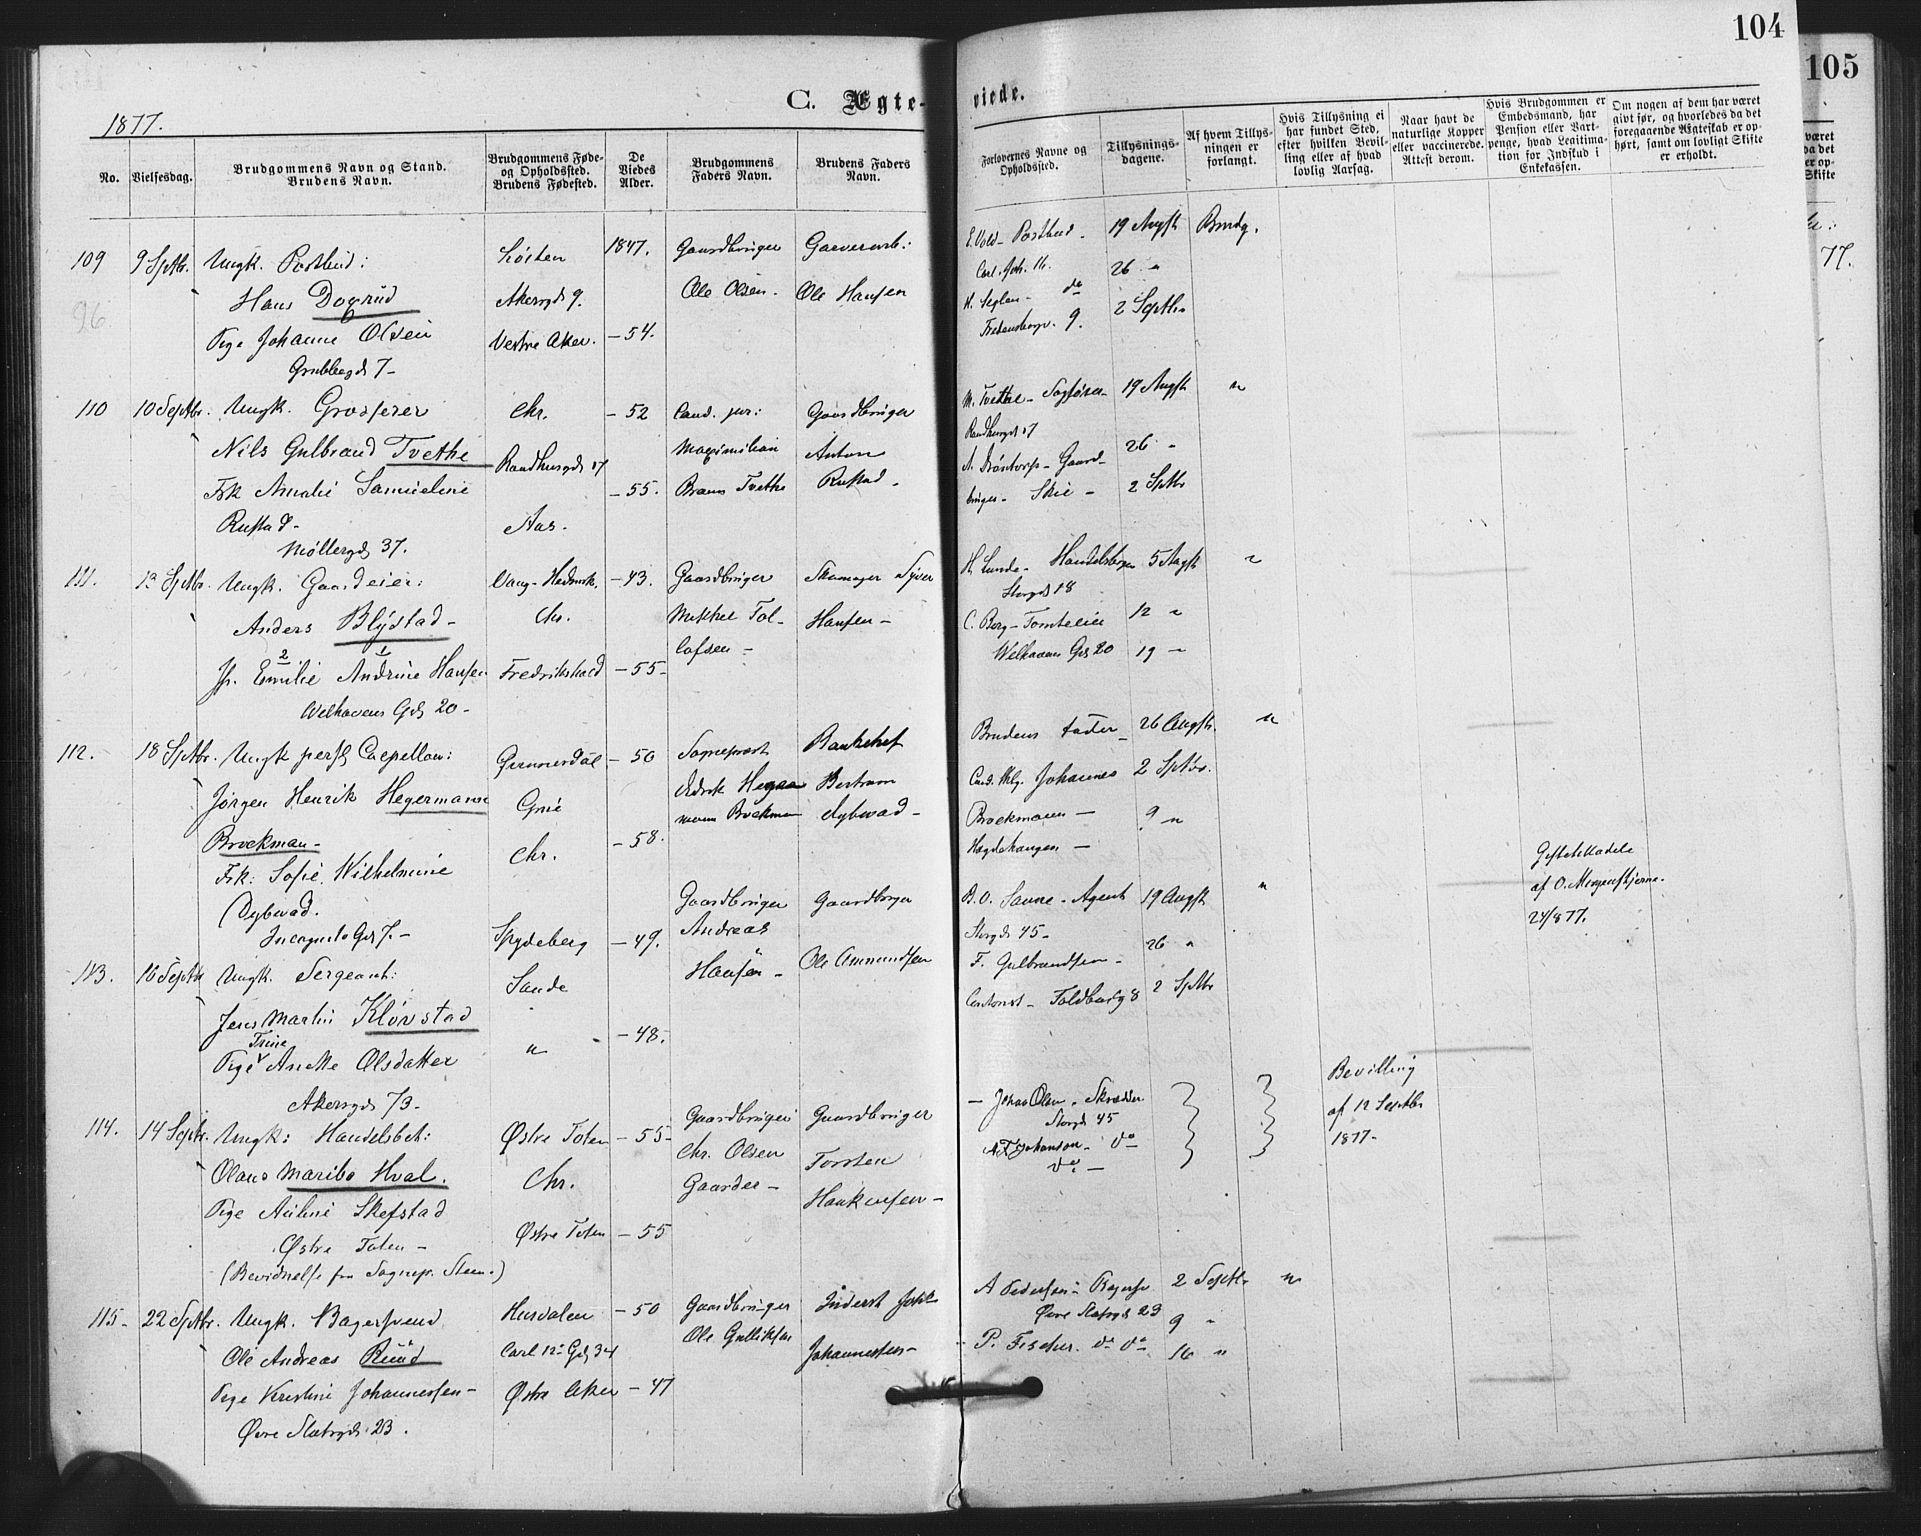 104
105
C. Ægte-
viede.
1877.
No.
Vielsesdag.
Brudgommens Navn og Stand.
Brudens Navn.
Brudgommens Føde-
og Opholdssted.
Brudens Fødested.
De
Viedes
Alder.
Brudgommens
Faders Navn.
Brudens Faders
Navn.
Forlovernes Navne og
Opholdssted.
Tillysnings-
dagene.
Af hvem Tillys-
ningen er
forlangt.
Hvis Tillysning ei
har fundet Sted,
efter hvilken Bevil-
ling eller af hvad
lovlig Aarsag.
Naar havt de
naturlige Kopper
eller vaccinerede.
Attest derom.
Hvis Brudgommen er
Embedsmand, har
Pension eller Vart-
penge, hvad Legitima-
tion for Indskud i
Enkekassen.
Om nogen af dem har været
givt før, og hvorledes da det
foregaaende Ægteskab er op-
hørt, samt om lovligt Skifte
er erholdt.
109 9 Septbr. Ungk. Postbud:
Hans Dogrud
Pige Johanne Olsen
Grubbegd 7-
96
Løiten
Akersgd 9.
Vestre Aker.
1847.
- 54.
Gaardbruger
Ole Olsen.
Garverarb:
Ole Hansen
E. Vold - Postbud.
Carl. Joh. 16.
H. Seglen - do
Fredensborgv. 9.
19 Augst
26 "
2 Septbr
Brudg.
110 10 Septbr. Ungk. Grosserer
Nils Gulbrand Tvethe
Frk Amalie Samueline
Rustad-
Møllergd 37.
Chr.
Raadhusgd 17
Aas.
- 52
- 55.
Cand. jur:
Maximilian
Braun Tvethe
Gaardbruger
Anton
Rustad.
M. Tvethe - Sagfører
Raadhusgd 17
Gaard-
bruger - Skie -
19 Augst
26 "
2 Septbr
"
111. 13 Septbr. Ungk. Gaardeier:
Anders Blystad-
2 1
Jfr. Emilie Andrine Hansen
Welhavens Gd 20-
Vang - Hedmark.
Chr.
Fredrikshald
- 43.
- 55-
Gaardbruger
Mikkel Tol-
lofsen -
Skomager Syver
Hansen -
H. Lunde - Handelsborger
Storgd 18
C. Berg - Tomteeier
Welhavens Gd 20
5 Augst
12 "
19 "
"
112. 18 Septbr. Ungk pers. Capellan:
Jørgen Henrik Hegermann
Brockman-
Frk: Sofie Wilhelmine
Dybwad.
Incognito Gd 7.-
Chr.
- 50
- 58.
Sognepræst
Bankchef
Bertram
Dybwad -
Brudens Fader
Cand. thlg. Johannes
Brockmann -
Hægdehaugen -
26 Augst.
2 Septbr.
9 "
"
af O. Morgenstjerne.
24/8 77.
113. 16 Septbr Ungk. Sergeant:
Jens Martin Kløvstad
Trine
Pige Anette Olsdatter
Akersgd 73-
Spydeberg
Sande
"
- 49.
- 48.
Gaardbruger
Andreas
Hansen -
Gaardbruger
Ole Amundsen
B. O. Sanne - Agent
Storgd 45-
F. Gulbrandsen -
Toldbodg 8
19 Augst
26 "
2 Septbr
"
114. 14 Septbr. Ungk: Handelsbet:
Olaus Maribo Hval.
Pige Auline Skefstad
Østre Toten -
(Bevidnelse fra Sognep. Steen.)
Østre Toten
Chr.
Østre Toten
- 55-
- 55
Gaardbruger
Chr. Olsen
Gaarder -
Gaardbruger
Torsten
Haakensen -
- Johan Olsen. Skrædder
Storgd 45
A. F. Johanson - do
do -
Bevilling
af 12 Septbr
1877-
115- 22 Septbr. Ungk. Bagersvend
Ole Andreas Ruud
Pige Kristine Johannessen-
Øvre Slotsgd 23.
Hurdalen
Carl 12 Gd 34
Østre Aker
- 50
- 47
Gaardbruger
Ole Gulliksen
Inderst
Johannessen-
A Pedersen - Bagersv
Øvre Slotsgd 23
P. Fischer. do do
2 Septbr
9 "
16 "
"
77.